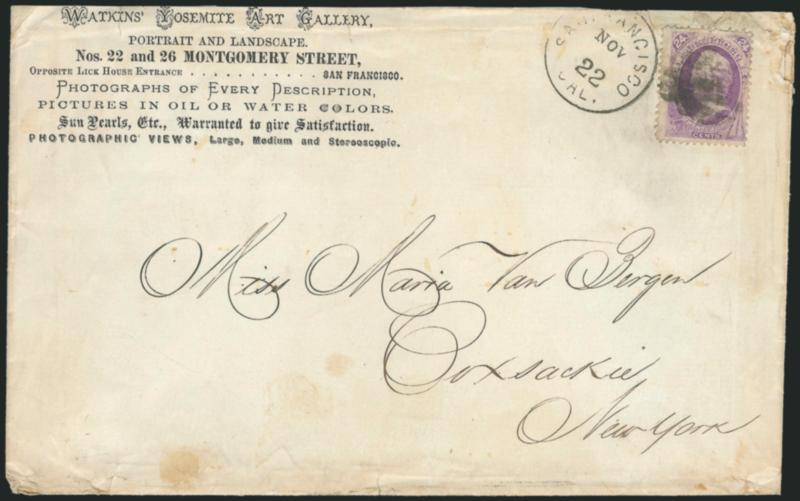 WATKINS' YOSEMITE ART GALLERY,
PORTRAIT AND LANDSCAPE.
Nos. 22 and 26 MONTGOMERY STREET,
OPPOSITE LICK HOUSE ENTRANCE . . . . . . . . . . . SAN FRANCISCO.
PHOTOGRAPHS OF EVERY DESCRIPTION,
PICTURES IN OIL OR WATER COLORS.
Sun Pearls, Etc., Warranted to give Satisfaction.
PHOTOGRAPHIC VIEWS, Large, Medium and Stereoscopic.
SAN FRANCISCO
NOV
22
CAL.
24
CENTS
Miss Maria Van Bergen
Coxsackie
New York